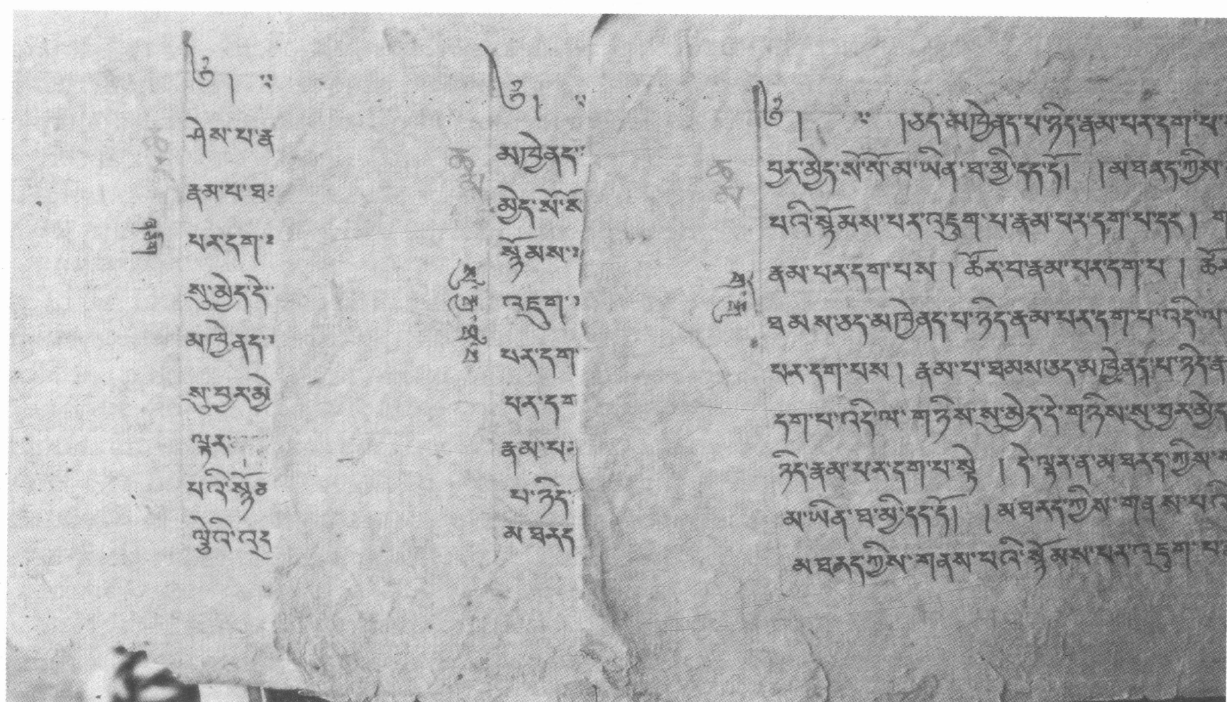 ༄། ༎
ཤེས་པ་
རྣམ་པ་ཐ
པར་དག་
སུ་མྱེད་དེ་
མཁྱེནད་
སུ་བྱར་མྱེ
ལྟར་
པའི་སྙོ
༄། ༎
མཁྱེནད་
མྱེད་སོ་སོ
སྙོམས་
འཇུག་
པར་དག
པར་དག
རྣམ་པ་
པ་ཉིད་
མཐརད
༄། ༎ །ཅད་མཁྱེནད་པ་ཉིད་རྣམ་པར་དག་པ་
བྱར་མྱེད་སོ་སོ་མ་ཡིན་ཐ་མྱི་དད་དོ། །མཐརད་ཀྱིས་
པའི་སྙོམས་པར་འཇུག་པ་རྣམ་པར་དག་པ་དང་།
རྣམ་པར་དག་པས། ཚོར་བ་རྣམ་པར་དག་པ། ཚོར
ཐམས་ཅད་མཁྱེནད་པ་ཉིད་རྣམ་པར་དག་པ་འདི་ལ་
པར་དག་པས། རྣམ་པ་ཐམས་ཅད་མཁྱེནད་པ་ཉིད་རྣ
དག་པ་འདི་ལ་གཉིས་སུ་མྱེད་དེ་གཉིས་སུ་བྱར་མྱེད
ཉིད་རྣམ་པར་དག་པ་སྟེ། དེ་ལྟར་ན་མཐརད་ཀྱིས་
མ་ཡིན་ཐ་མྱི་དད་དོ། །མཐརད་ཀྱིས་གནས་པའི
མཐརད་ཀྱིས་གནས་པའི་སྙོམས་པར་འཇུག་པ་